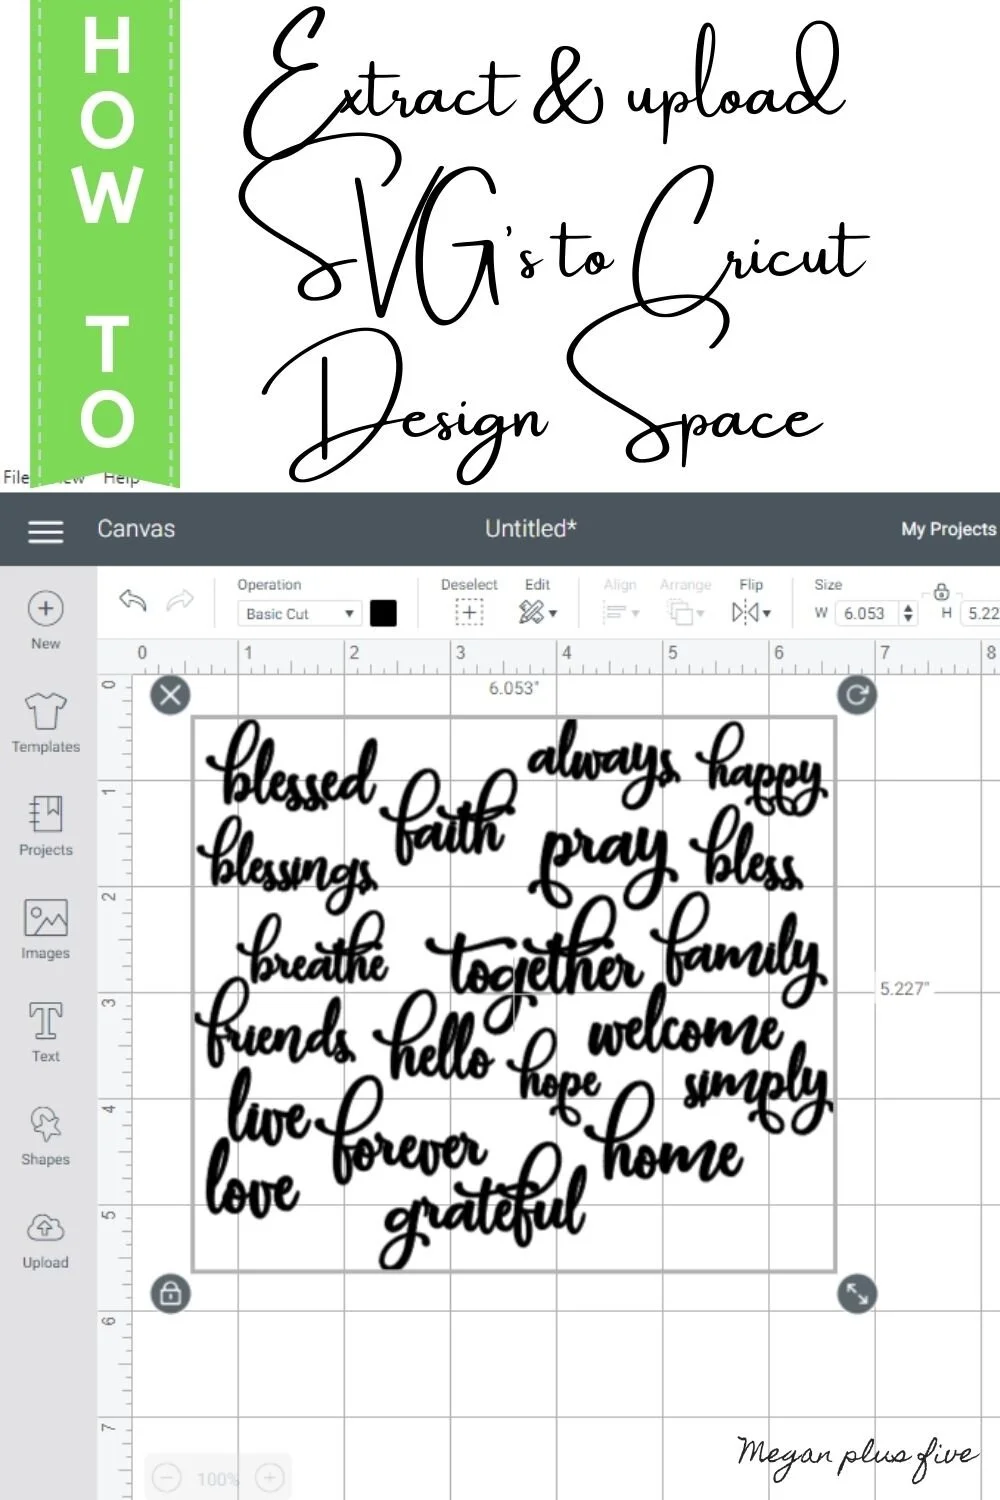 HOW TO
Extract & upload
SVG's to Cricut
Design Space
File Help
Canvas Untitled* My Projects
Operation Deselect Edit Align Arrange Flip Size
Basic Cut W 6.053 H 5.22
New
0 1 2 3 4 5 6 7 8
0
6.053"
Templates
blessed always happy
1
faith
Projects
blessings pray bless
2
Images
breathe together family
3
5.227"
friends hello welcome
Text
hope simply
4
live forever home
Shapes
love grateful
5
Upload
6
7
100%
Megan plus five